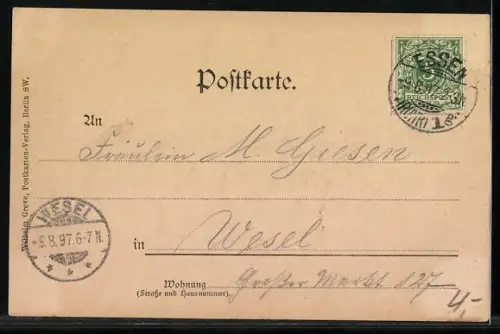 Postkarte.
An
Fräulein M. Giesen
in Wesel
Wohnung Großer Markt 127
(Straße und Hausnummer).
Wilhelm Greve, Postkarten-Verlag, Berlin SW.
ESSEN
REICHSPOST
(RUHR) 1
WESEL
8.97.6-7N.
4,-